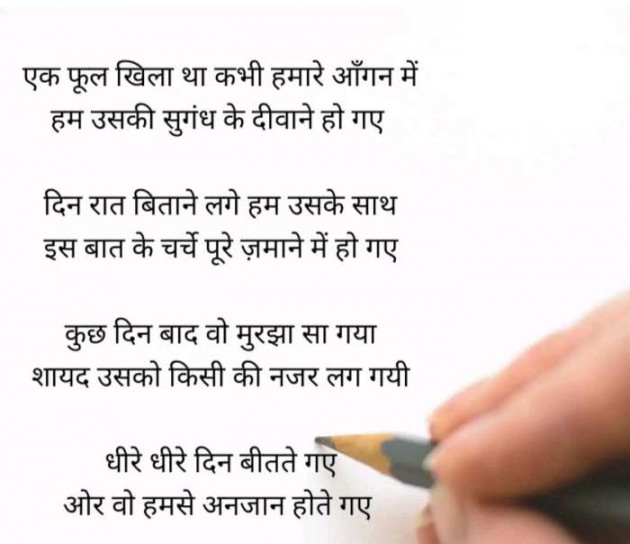 एक फूल खिला था कभी हमारे आँगन में
हम उसकी सुगंध के दीवाने हो गए
दिन रात बिताने लगे हम उसके साथ
इस बात के चर्चे पूरे ज़माने में हो गए
कुछ दिन बाद वो मुरझा सा गया
शायद उसको किसी की नजर लग गयी
धीरे धीरे दिन बीतते गए
ओर वो हमसे अनजान होते गए